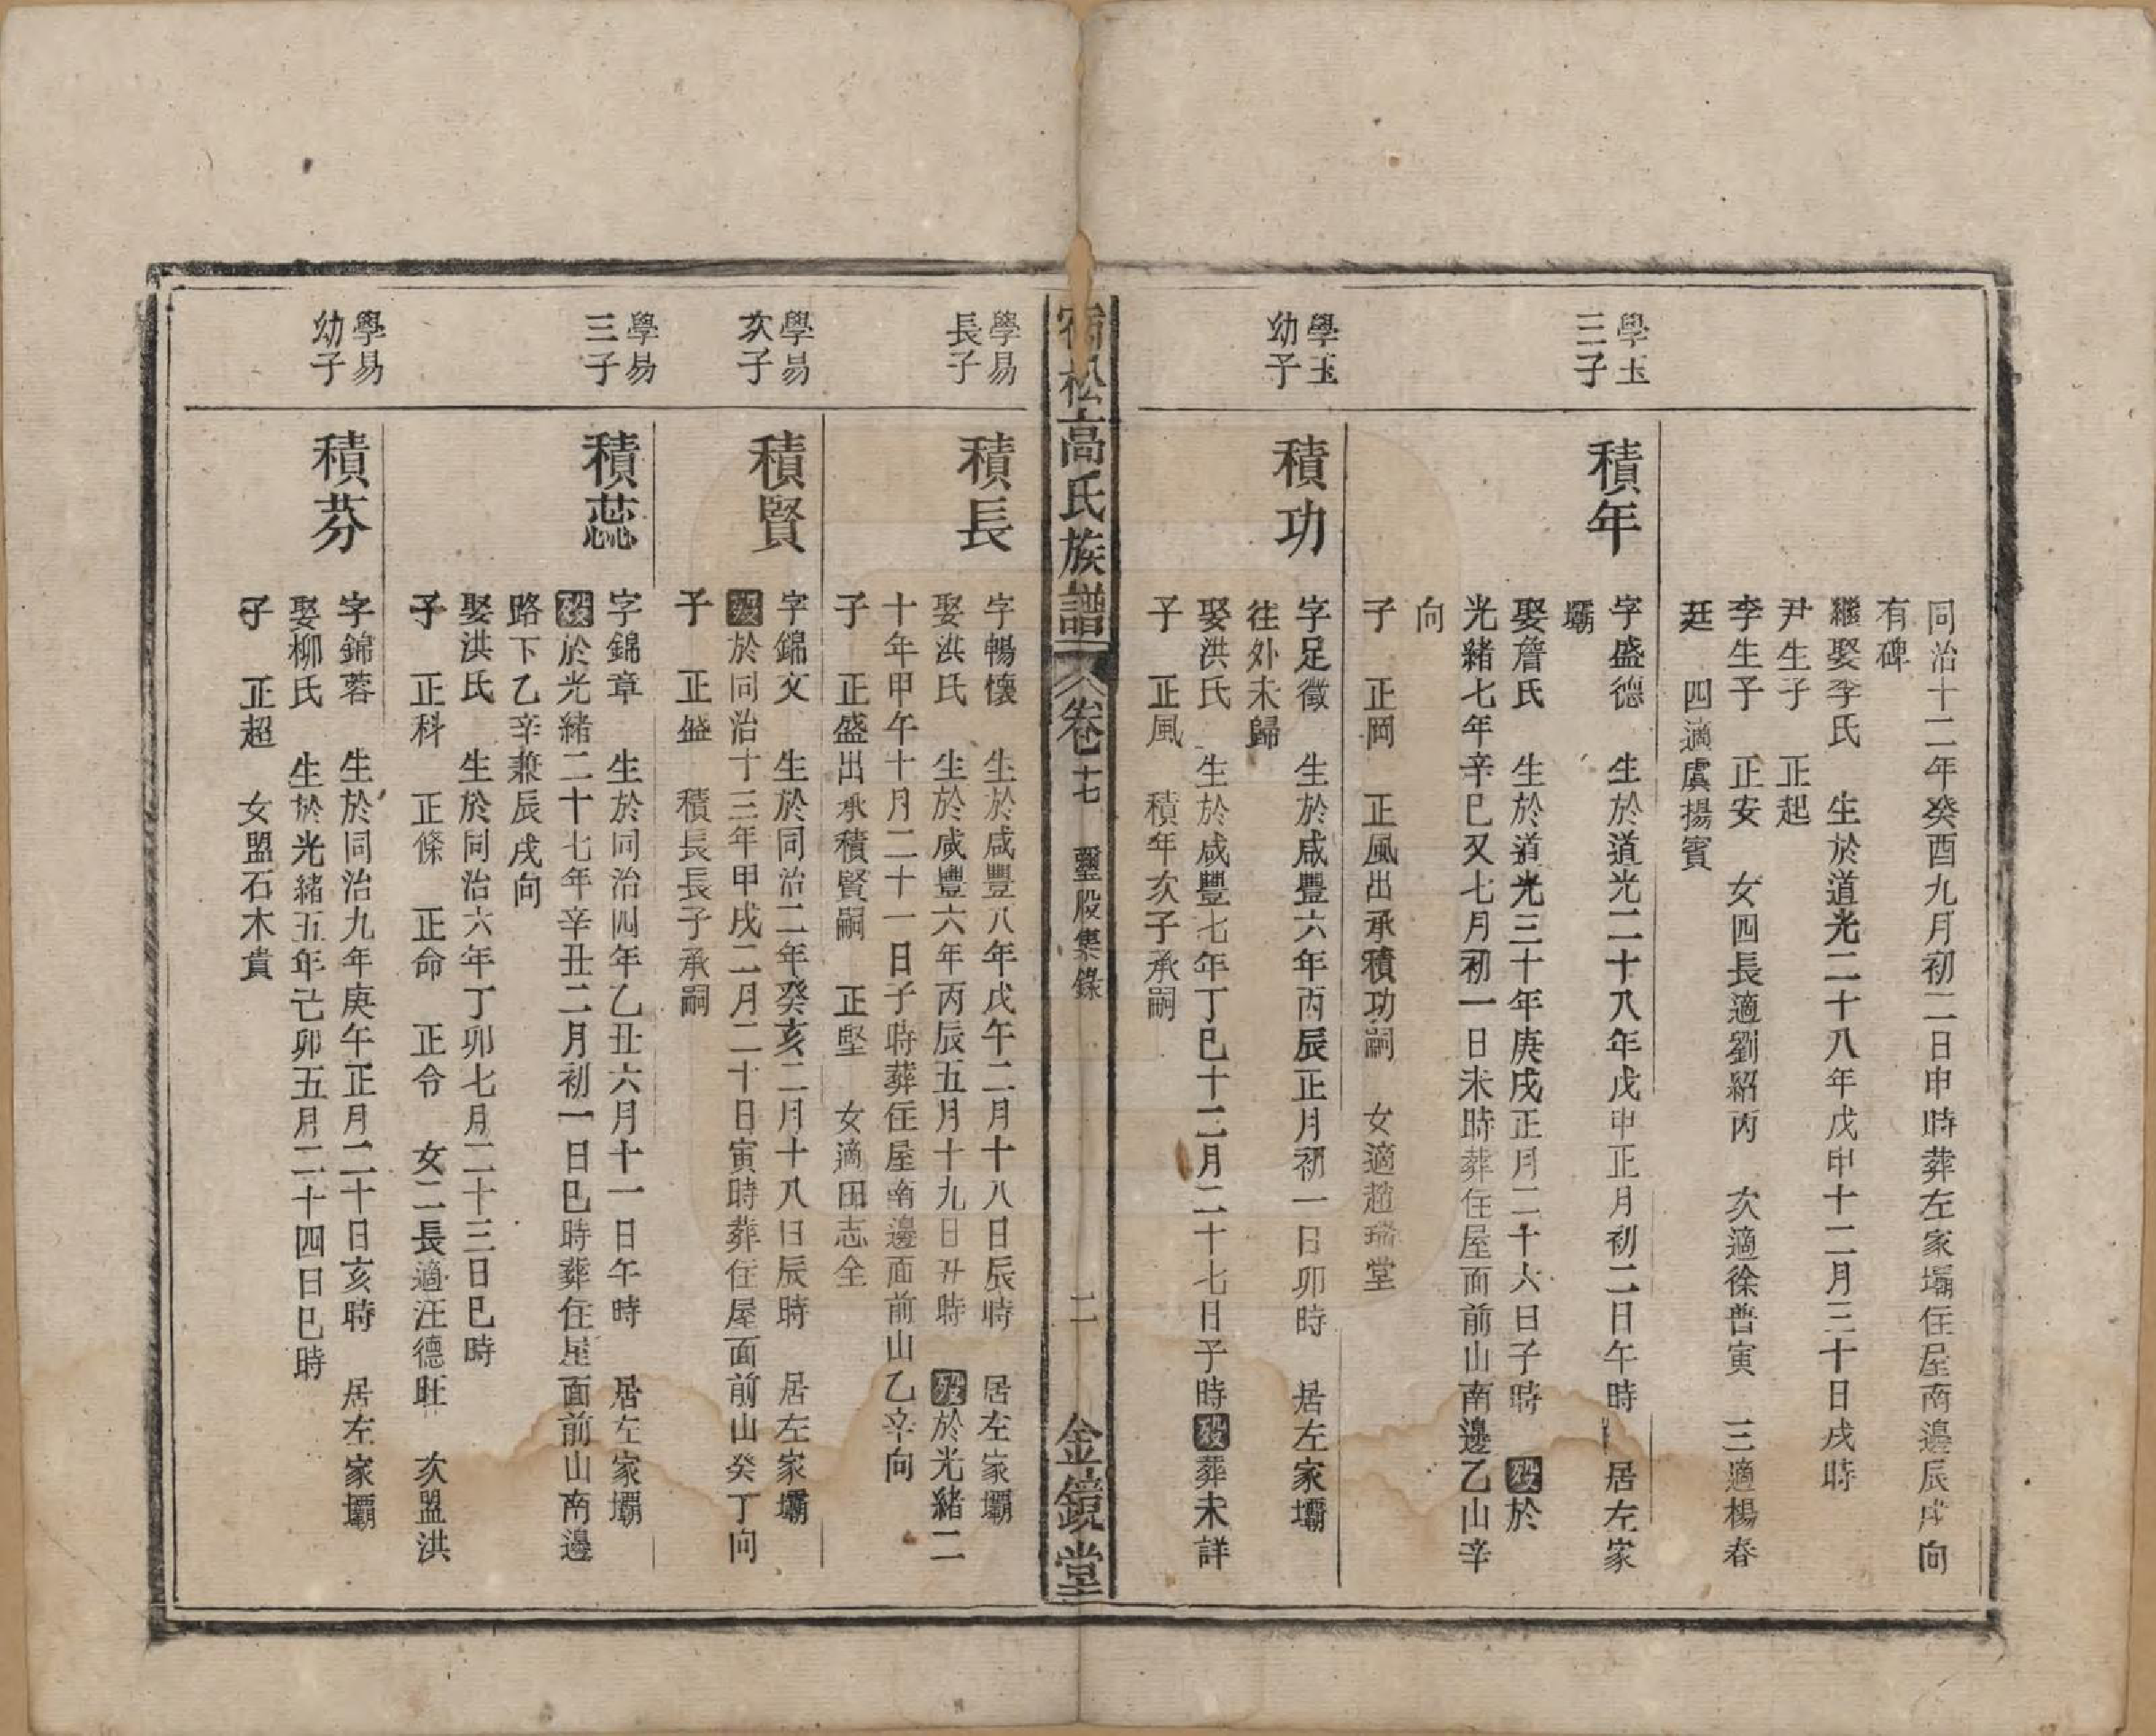 同治十二年癸酉九月初二日申時葬左家壩住屋南邊辰戌向
有碑
繼娶李氏　生於道光二十八年戊申十二月三十日戌時
尹生子　正起
李生子　正安　女四長適劉紹丙　次適徐普寅　三適楊春
廷　四適虞揚賓
學玉
三子
積年
字盛德　生於道光二十八年戊申正月初二日午時　居左家
壩
娶詹氏　生於道光三十年庚戌正月二十六日子時　歿於
光緒七年辛巳又七月初一日未時葬住屋面前山南邊乙山辛
向
子　正岡　正風出承積功嗣　女適趙瑞堂
學玉
幼子
積功
字足徵　生於咸豐六年丙辰正月初一日卯時　居左家壩
往外未歸
娶洪氏　生於咸豐七年丁巳十二月二十七日子時歿葬未詳
子　正風　積年次子承嗣
宿松高氏族譜　卷七　璽股集錄　二　金鏡堂
學易
長子
積長
字暢懷　生於咸豐八年戊午二月十八日辰時　居左家壩
娶洪氏　生於咸豐六年丙辰五月十九日丑時　歿於光緒二
十年甲午十月二十一日子時葬住屋南邊面前山乙辛向
子　正盛出承積賢嗣　正堅　女適田志全
學易
次子
積賢
字錦文　生於同治二年癸亥二月十八日辰時　居左家壩
歿於同治十三年甲戌二月二十日寅時葬住屋面前山癸丁向
子　正盛　積長長子承嗣
學易
三子
積蕊
字錦章　生於同治四年乙丑六月十一日午時　居左家壩
歿於光緒二十七年辛丑二月初一日巳時葬住屋面前山南邊
路下乙辛兼辰戌向
娶洪氏　生於同治六年丁卯七月二十三日巳時
子　正科　正條　正命　正令　女二長適汪德旺　次盟洪
學易
幼子
積芬
字錦蓉　生於同治九年庚午正月二十日亥時　居左家壩
娶柳氏　生於光緒五年己卯五月二十四日巳時
子　正超　女盟石木貴